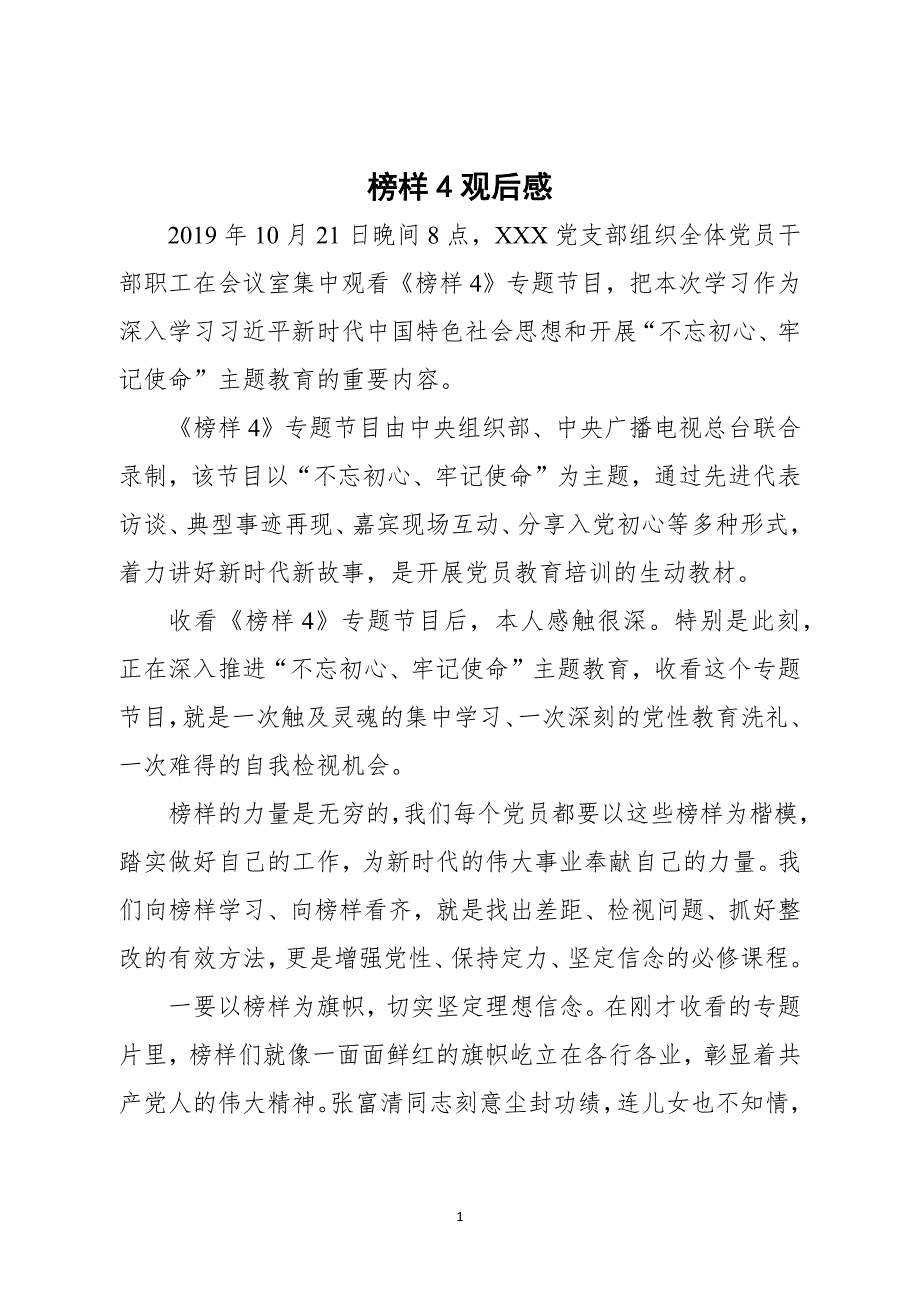 榜样4观后感
2019年10月21日晚间8点，XXX党支部组织全体党员干
部职工在会议室集中观看《榜样4》专题节目，把本次学习作为
深入学习习近平新时代中国特色社会思想和开展“不忘初心、牢
记使命”主题教育的重要内容。
《榜样4》专题节目由中央组织部、中央广播电视总台联合
录制，该节目以“不忘初心、牢记使命”为主题，通过先进代表
访谈、典型事迹再现、嘉宾现场互动、分享入党初心等多种形式，
着力讲好新时代新故事，是开展党员教育培训的生动教材。
收看《榜样4》专题节目后，本人感触很深。特别是此刻，
正在深入推进“不忘初心、牢记使命”主题教育，收看这个专题
节目，就是一次触及灵魂的集中学习、一次深刻的党性教育洗礼、
一次难得的自我检视机会。
榜样的力量是无穷的，我们每个党员都要以这些榜样为楷模，
踏实做好自己的工作，为新时代的伟大事业奉献自己的力量。我
们向榜样学习、向榜样看齐，就是找出差距、检视问题、抓好整
改的有效方法，更是增强党性、保持定力、坚定信念的必修课程。
一要以榜样为旗帜，切实坚定理想信念。在刚才收看的专题
片里，榜样们就像一面面鲜红的旗帜屹立在各行各业，彰显着共
产党人的伟大精神。张富清同志刻意尘封功绩，连儿女也不知情，
1